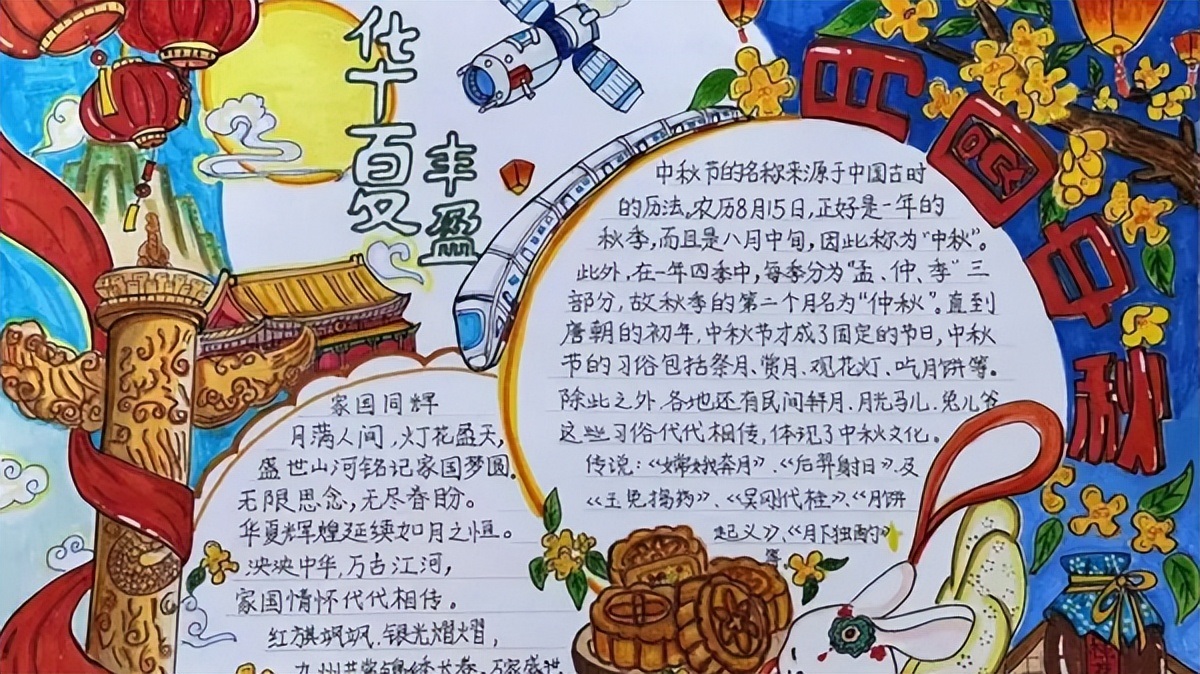 华夏
丰盈
品中秋
中秋节的名称来源于中国古时
的历法。农历8月15日,正好是一年的
秋季,而且是八月中旬,因此称为“中秋”。
此外,在一年四季中,每季分为“孟、仲、季”三
部分,故秋季的第二个月名为“仲秋”。直到
唐朝的初年,中秋节才成了固定的节日,中秋
节的习俗包括祭月、赏月、观花灯、吃月饼等。
除此之外,各地还有民间拜月、月光马儿、兔儿爷
这些习俗代代相传,体现了中秋文化。
传说:《嫦娥奔月》、《后羿射日》及
《玉兔捣药》、《吴刚伐桂》、《月饼
起义》、《月下独酌》
等
家国同辉
月满人间,灯花盈天,
盛世山河铭记家国梦圆。
无限思念,无尽眷盼。
华夏辉煌延续如月之恒。
泱泱中华,万古江河,
家国情怀代代相传。
红旗飒飒,银光熠熠,
九州共赏锦绣长卷,万家盛世